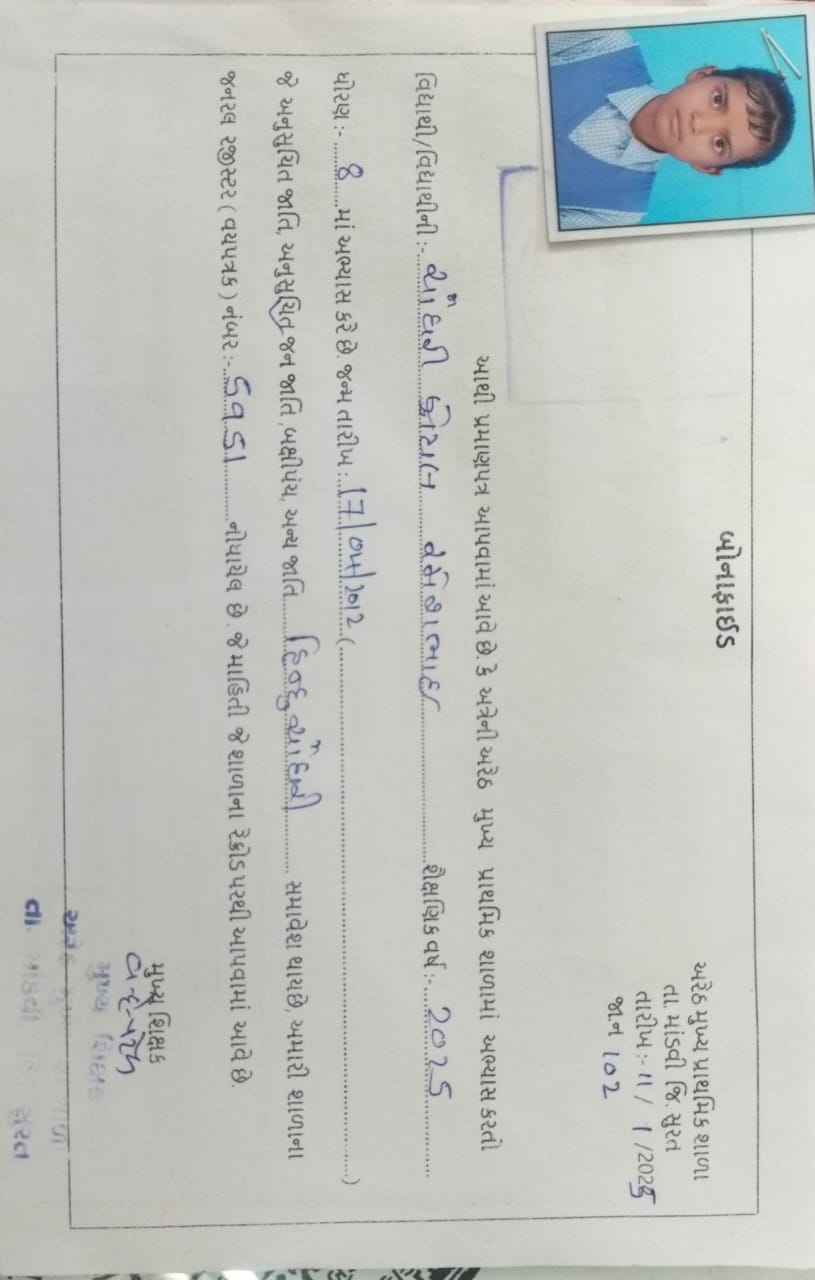 બોનાફાઈડ
અરેઠ મુખ્ય પ્રાથમિક શાળા
તા. માંડવી જિ. સુરત
તારીખ:- 11 / 1 /2025
જાન 102
આથી પ્રમાણપત્ર આપવામાં આવે છે. કે અત્રેની અરેઠ મુખ્ય પ્રાથમિક શાળામાં અભ્યાસ કરતી
વિદ્યાથી/વિદ્યાથીની:- ચૌધરી રમેશભાઇ શૈક્ષણિક વર્ષ:- 2025
ધોરણ:- 8 માં અભ્યાસ કરે છે. જન્મ તારીખ:- ( )
જે અનુસુચિત જાતિ, અનુસુચિત જન જાતિ, બક્ષીપંચ, અન્ય જાતિ હિન્દુ ચૌધરી સમાવેશ થાય છે, અમારી શાળાના
જનરલ રજીસ્ટર ( વયપત્રક ) નંબર:- નોંધાયેલ છે. જે માહિતી જે શાળાના રેકોર્ડ પરથી આપવામાં આવે છે.
મુખ્ય શિક્ષક
મુખ્ય શિક્ષક
તા. માંડવી જિ. સુરત